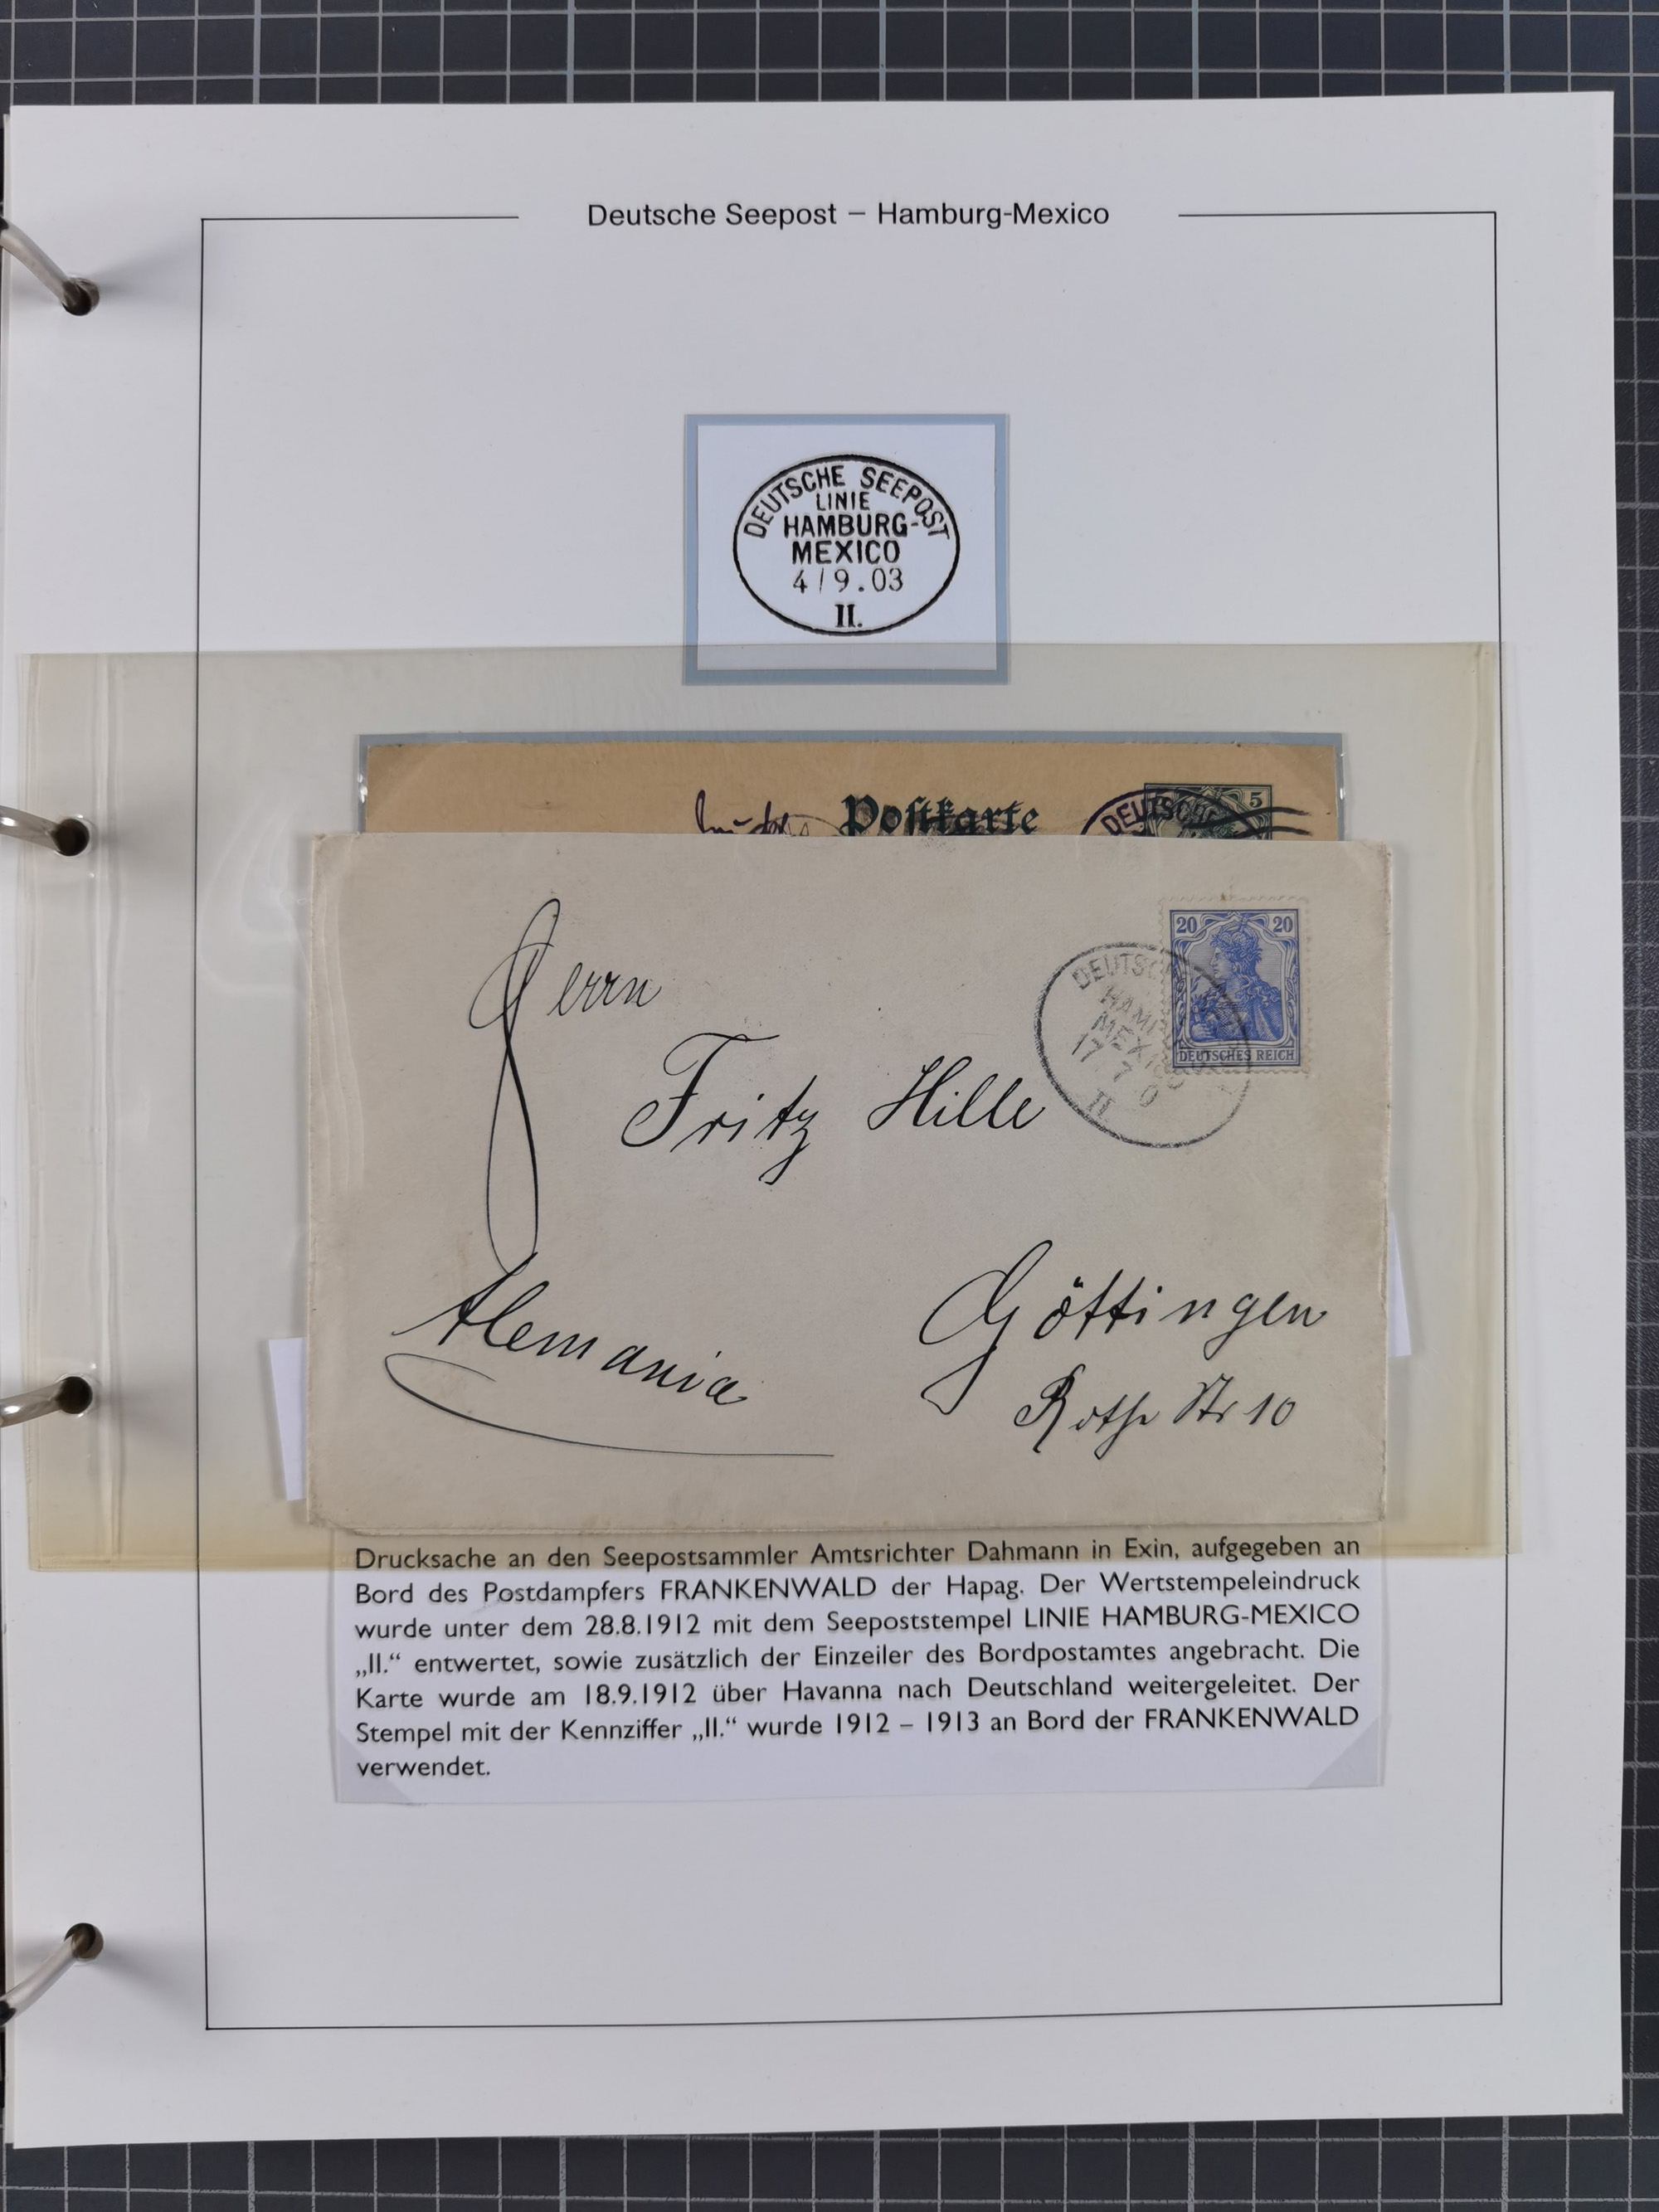 Deutsche Seepost – Hamburg-Mexico
DEUTSCHE SEEPOST
LINIE
HAMBURG-
MEXICO
4/9.03
II.
Postkarte
5
DEUTSCHE
20 20
DEUTSCHES REICH
DEUTSC
HAMBURG
MEXICO
17 7 0
II
Herrn
Fritz Hille
Göttingen
Alemania
Rothe Str 10
Drucksache an den Seepostsammler Amtsrichter Dahmann in Exin, aufgegeben an
Bord des Postdampfers FRANKENWALD der Hapag. Der Wertstempeleindruck
wurde unter dem 28.8.1912 mit dem Seepoststempel LINIE HAMBURG-MEXICO
„II.“ entwertet, sowie zusätzlich der Einzeiler des Bordpostamtes angebracht. Die
Karte wurde am 18.9.1912 über Havanna nach Deutschland weitergeleitet. Der
Stempel mit der Kennziffer „II.“ wurde 1912 – 1913 an Bord der FRANKENWALD
verwendet.